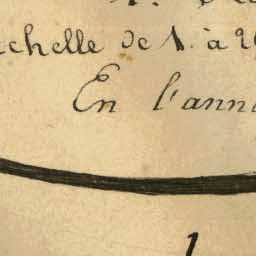 echelle de 1. à 2
En l'ann
1